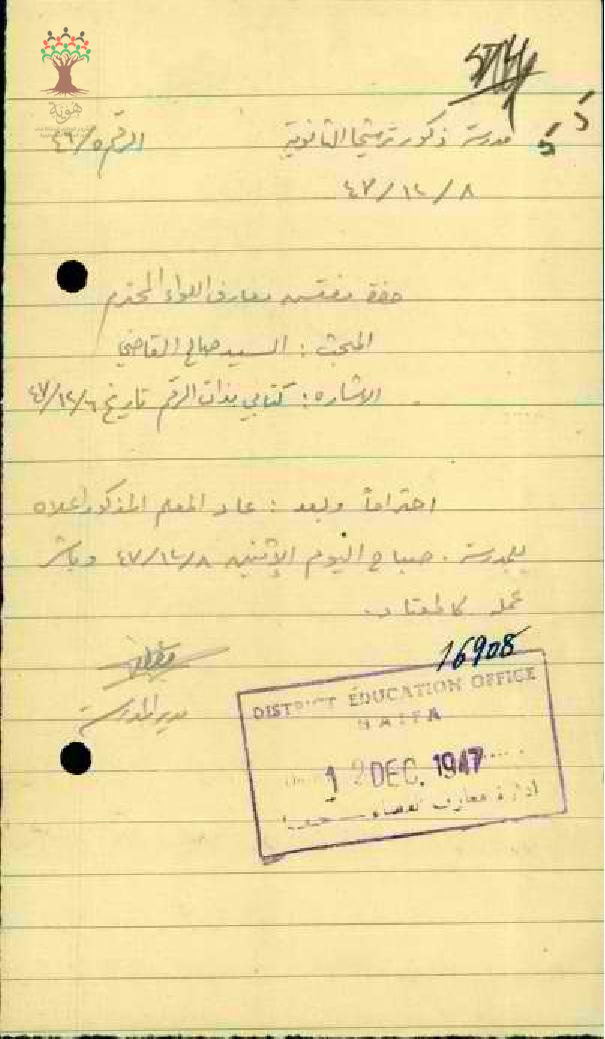 هوية
مدرسة ذكور ترشيحا الثانوية
الرقم ٤٦/٥
٤٧/١٢/٨
حضرة مفتش معارف اللواء المحترم
المبحث : السيد صالح القاضي
الاشاره : كتابي بذات الرقم تاريخ ٤٧/١٢/٦
احتراماً وبعد : عاد المعلم المذكور اعلاه
للمدرسة . صباح اليوم الإثنين ٤٧/١٢/٨ وباشر
عمله كالمعتاد .
مدير المدرسة
16908
DISTRICT EDUCATION OFFICE
HAIFA
12 DEC. 1947
ادارة معارف